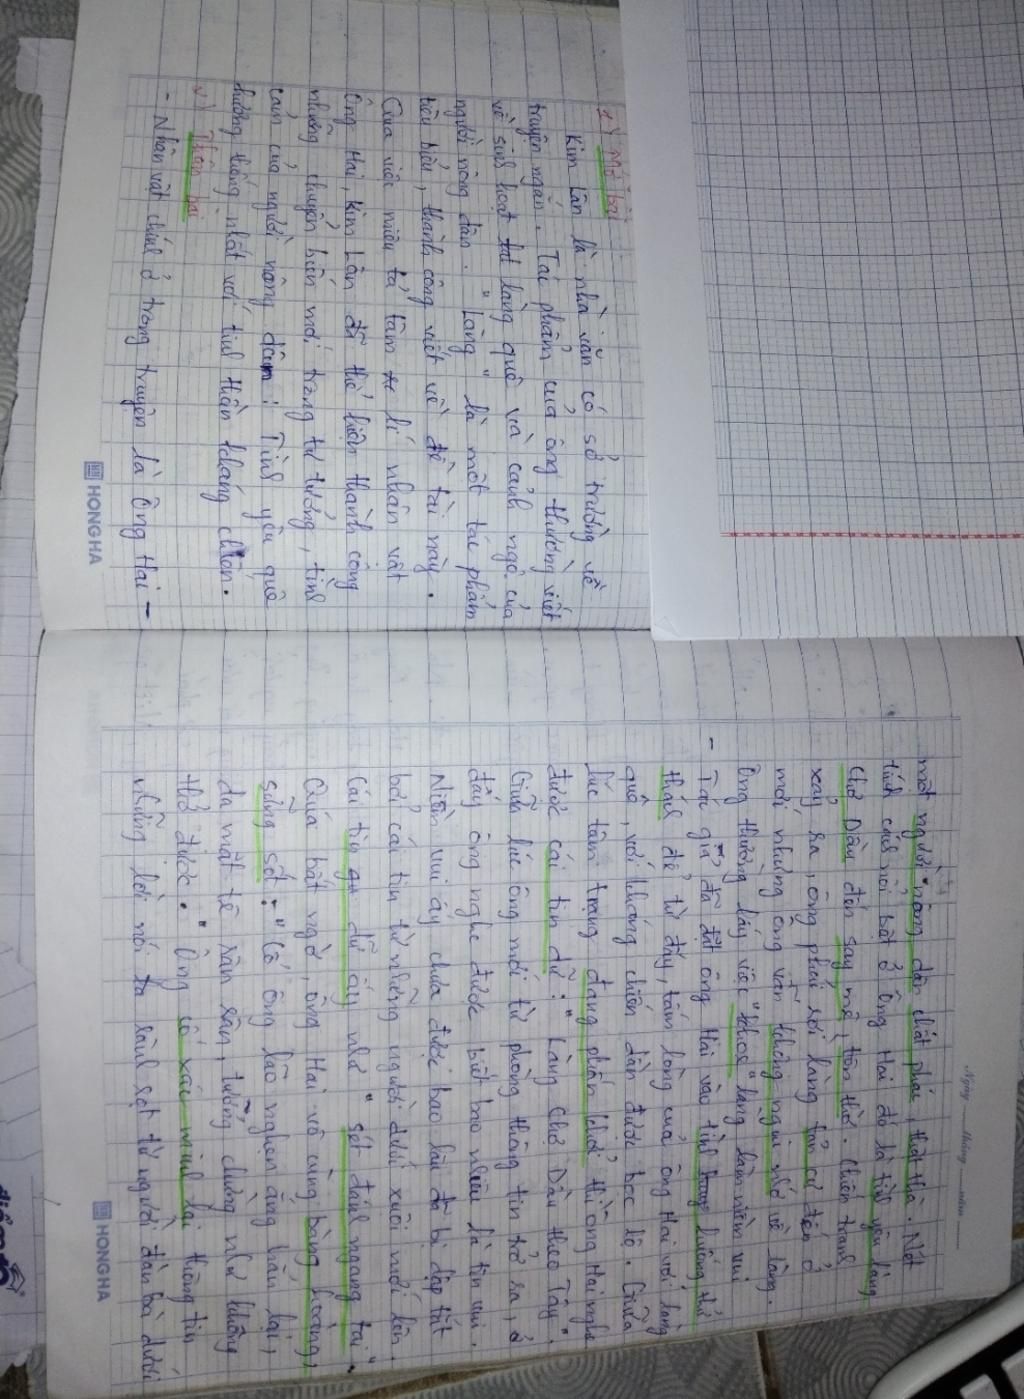 1) Mở bài
Kim Lân là nhà văn có sở trường về
truyện ngắn. Tác phẩm của ông thường viết
về sinh hoạt làng quê và cảnh ngộ của
người nông dân. "Làng" là một tác phẩm
tiêu biểu, thành công viết về đề tài này.
Qua việc miêu tả tâm lí nhân vật
ông Hai, Kim Lân đã thể hiện thành công
những chuyển biến mới trong tư tưởng, tình
cảm của người nông dân: Tình yêu quê
hương thống nhất với tinh thần kháng chiến.
Thân bài
- Nhân vật chính ở trong truyện là ông Hai -
HONG HA
Ngày tháng năm
một người nông dân chất phác, thật thà. Nét
tính cách nổi bật ở ông Hai đó là tình yêu làng
Chợ Dầu đến say mê, tôn thờ. Chiến tranh
xảy ra, ông phải rời làng tản cư đến ở
nơi nhưng ông vẫn không nguôi nhớ về làng.
Ông thường lấy việc "khoe" làng làm niềm vui
- Tác giả đã đặt ông Hai vào tình huống thử
thách để từ đấy, tấm lòng của ông Hai với làng
quê, với kháng chiến dần được bộc lộ. Giữa
lúc tâm trạng đang phấn khởi thì ông Hai nghe
được cái tin dữ: "Làng Chợ Dầu theo Tây".
Giữa lúc ông mới từ phòng thông tin trở ra, ở
đấy ông nghe được biết bao nhiêu là tin vui.
Niềm vui ấy chưa được bao lâu đã bị dập tắt
bởi cái tin từ những người dưới xuôi mới lên.
Cái tin dữ ấy như "sét đánh ngang tai".
Quá bất ngờ, ông Hai vô cùng bàng hoàng,
sững sờ: "Cổ ông lão nghẹn ắng hẳn lại,
da mặt tê rân rân, tưởng chừng như không
thở được." Ông cố xác minh lại thông tin
những lời nói rành rọt từ người đàn bà dưới
HONG HA